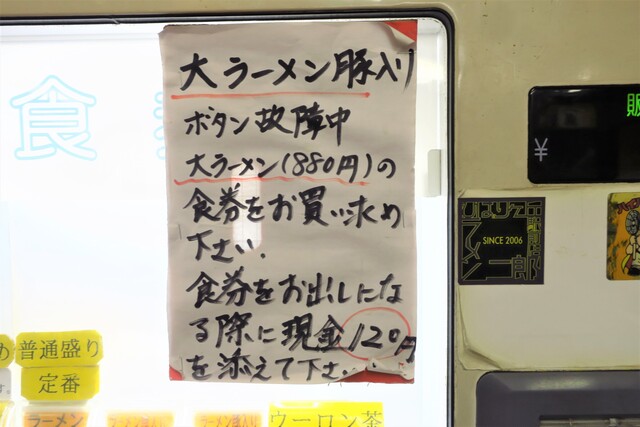 大ラーメン豚入り
ボタン故障中
大ラーメン(880円)の
食券をお買い求め
下さい.
食券をお出しにな
る際に現金120円
を添えて下さい..
食
販
¥
SINCE 2006
普通盛り
定番
ラーメン
ラーメン豚入り
ラーメン豚入り
ウーロン茶